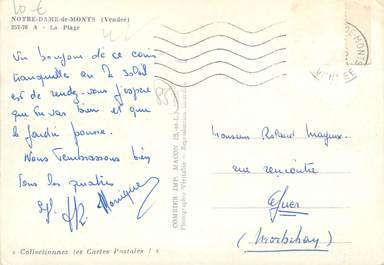 10 €
NOTRE-DAME-de-MONTS (Vendée)
257-76 A - La Plage
Un bonjour de ce coin
tranquille où le soleil
est de rendez-vous j'espère
que tu vas bien et que
le jardin pousse.
Nous t'embrassons bien
tous les quatre
Monique
COMBIER IMP. MACON (S.-et-L.)
Photographie Véritable - Reproduction interdite
VENDEE
Monsieur Roland
rue rencontre
(Morbihan)
« Collectionnez les Cartes Postales ! »